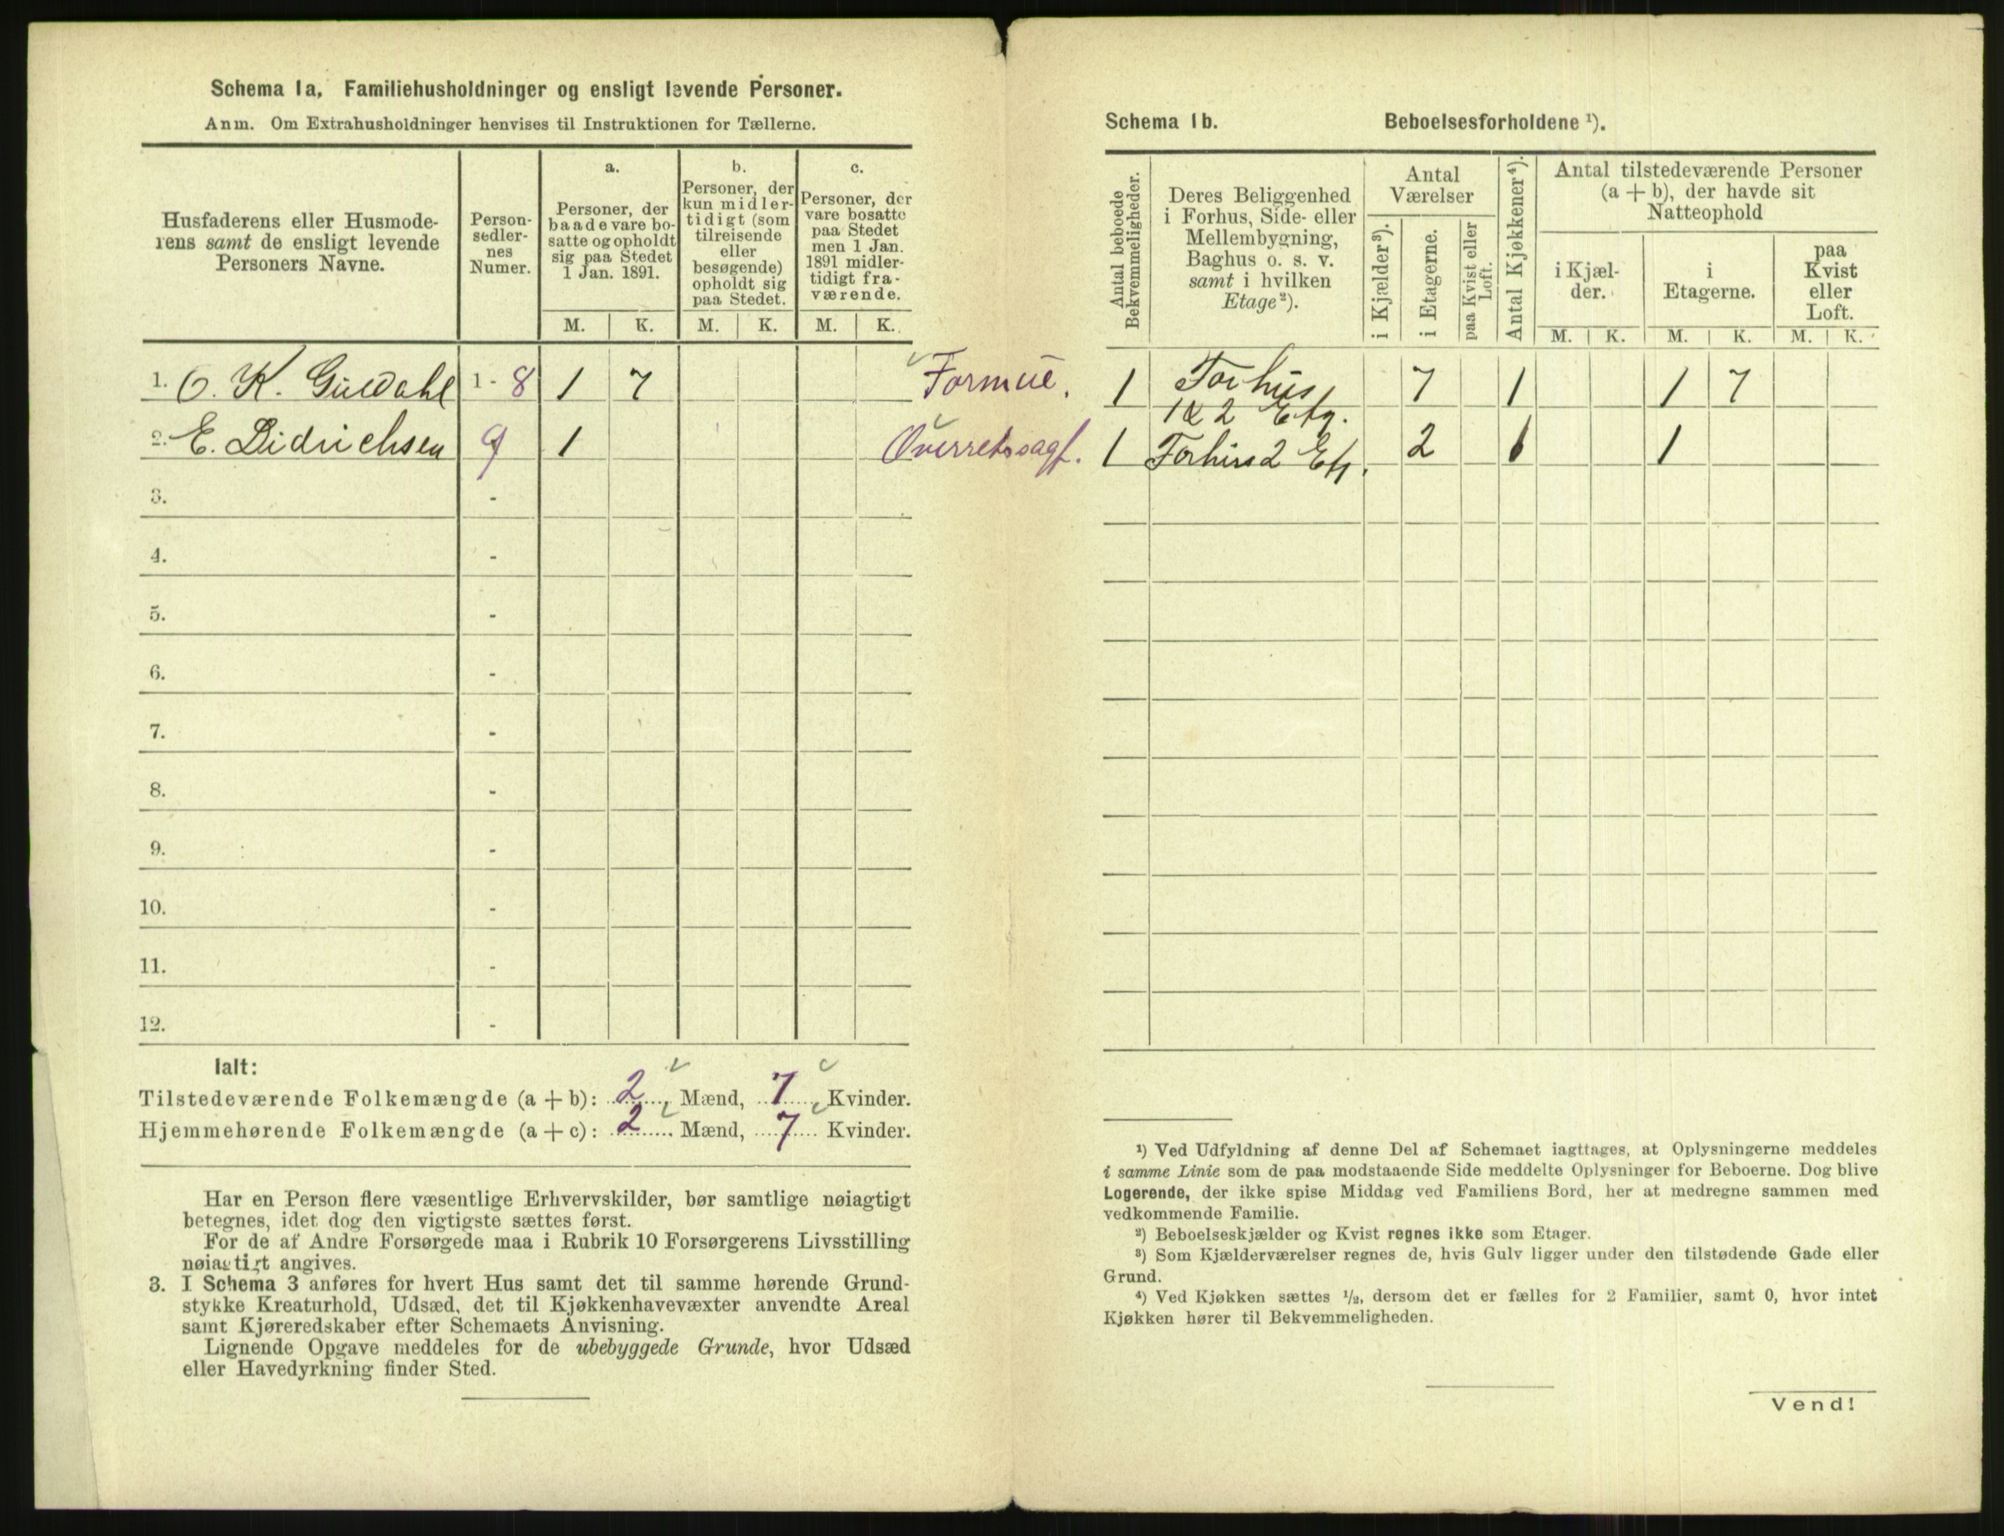 Schema 1a. Familiehusholdninger og ensligt levende Personer.
Anm. Om Extrahusholdninger henvises til Instruktionen for Tællerne.
Husfaderens eller Husmode-
rens samt de ensligt levende
Personers Navne.
Person-
sedler-
nes
Numer.
a.
Personer, der
baade vare bo-
satte og opholdt
sig paa Stedet
1 Jan. 1891.
b.
Personer, der
kun midler-
tidigt (som
tilreisende
eller
besøgende)
opholdt sig
paa Stedet.
c.
Personer, der
vare bosatte
paa Stedet
men 1 Jan.
1891 midler-
tidigt fra-
værende.
M. K. M. K. M. K.
1. O. K. Guldahl 1 - 8 1 7 Formue.
2. E. Didrichsen 9 1 Overretssagf.
3. -
4. -
5. -
6. -
7. -
8. -
9. -
10. -
11. -
12. -
Ialt:
Tilstedeværende Folkemængde (a + b): 2 Mænd, 7 Kvinder.
Hjemmehørende Folkemængde (a + c): 2 Mænd, 7 Kvinder.
Har en Person flere væsentlige Erhvervskilder, bør samtlige nøiagtigt
betegnes, idet dog den vigtigste sættes først.
For de af Andre Forsørgede maa i Rubrik 10 Forsørgerens Livsstilling
nøiagtigt angives.
3. I Schema 3 anføres for hvert Hus samt det til samme hørende Grund-
stykke Kreaturhold, Udsæd, det til Kjøkkenhavevæxter anvendte Areal
samt Kjøreredskaber efter Schemaets Anvisning.
Lignende Opgave meddeles for de ubebyggede Grunde, hvor Udsæd
eller Havedyrkning finder Sted.
Schema 1b. Beboelsesforholdene ¹).
Antal beboede
Bekvemmeligheder.
Deres Beliggenhed
i Forhus, Side- eller
Mellembygning,
Baghus o. s. v.
samt i hvilken
Etage²).
Antal
Værelser
i Kjælder³).
i Etagerne.
paa Kvist eller
Loft.
Antal Kjøkkener⁴).
Antal tilstedeværende Personer
(a + b), der havde sit
Natteophold
i Kjæl-
der.
i
Etagerne.
paa
Kvist
eller
Loft.
M. K. M. K. M. K.
1 Forhus 7 1 1 7
1 & 2 Etg.
1 Forhus 2 Etg. 2 1 1
¹) Ved Udfyldning af denne Del af Schemaet iagttages, at Oplysningerne meddeles
i samme Linie som de paa modstaaende Side meddelte Oplysninger for Beboerne. Dog blive
Logerende, der ikke spise Middag ved Familiens Bord, her at medregne sammen med
vedkommende Familie.
²) Beboelseskjælder og Kvist regnes ikke som Etager.
³) Som Kjælderværelser regnes de, hvis Gulv ligger under den tilstødende Gade eller
Grund.
⁴) Ved Kjøkken sættes ½, dersom det er fælles for 2 Familier, samt 0, hvor intet
Kjøkken hører til Bekvemmeligheden.
Vend!